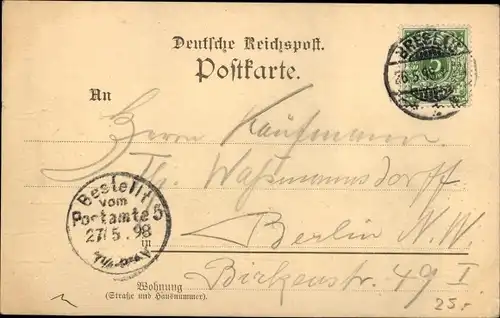 Deutsche Reichspost.
Postkarte.
BRESLAU
26.5.98
5
An
Herrn Kaufmann
Th. Wassmannsdorff
Bestellt
vom
Postamte 5
27/5.98
in
Berlin N. W.
Birkenstr. 49 I
Wohnung
(Straße und Hausnummer).
25.-